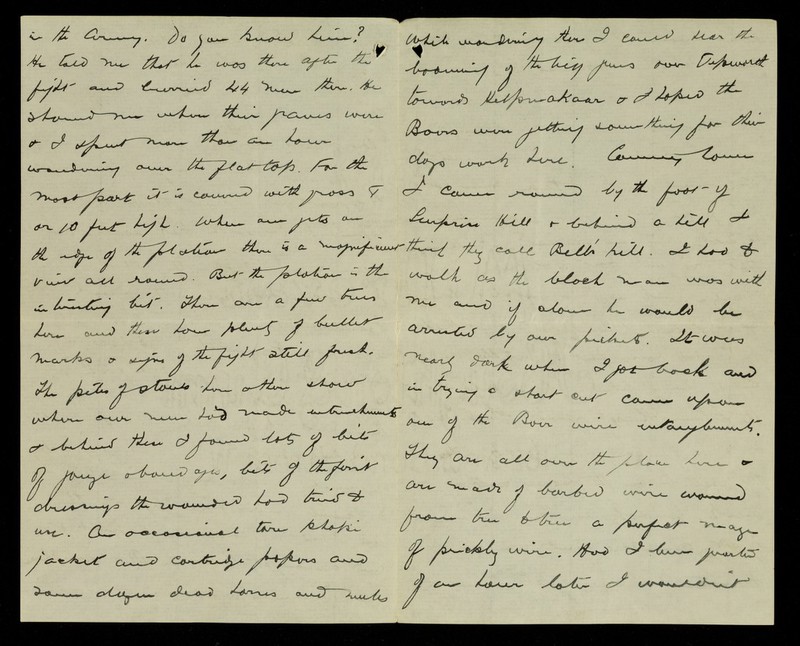 in the Army. Do you know him?
He told me that he was there after the
fight and buried 44 men there. He
showed me where their graves were
& I spent more than an hour
wandering over the flat top. For the
most part it is covered with grass 8
or 10 feet high. When one gets on
the edge of the plateau there is a magnificent
view all round. But the plateau is the
interesting bit. There are a few trees
here and these have plenty of bullet
marks & signs of the fight still fresh.
The piles of stones here & there show
where our men had made entrenchments
& behind these I found lots of bits
of gauge bandages, bits of the first
dressings the wounded had tried to
use. An occasional torn khaki
jacket and cartridge papers and
some dozen dead horses and mules
While wandering there I could hear the
booming of the big guns over
towards Helpmakaar & I hoped the
Boers were getting something for their
days work here. Coming home
I came round by the foot of
Surprise Hill & behind a hill I
think they call Bell's hill. I had to
walk as the black man was with
me and if alone he would be
arrested by our pickets. It was
nearly dark when I got back and
in trying a short cut came upon
one of the Boer wire entanglements.
They are all over the place here &
are made of barbed wire wound
from tree to tree a perfect maze
of prickly wire. Had I been quarter
of an hour later I wouldn't